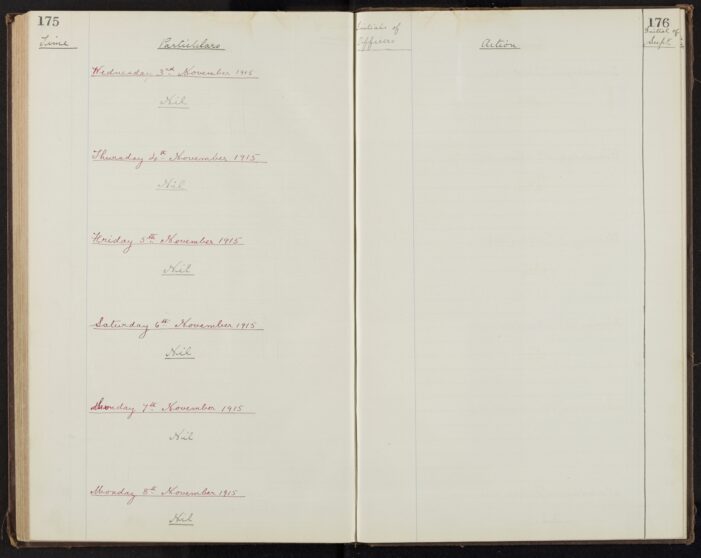 175
Time
Particulars
Wednesday 3rd November 1915
Nil
Thursday 4th November 1915
Nil
Friday 5th November 1915
Nil
Saturday 6th November 1915
Nil
Sunday 7th November 1915
Nil
Monday 8th November 1915
Nil
176
Initials of
Officers
Action
Initial of
Supt